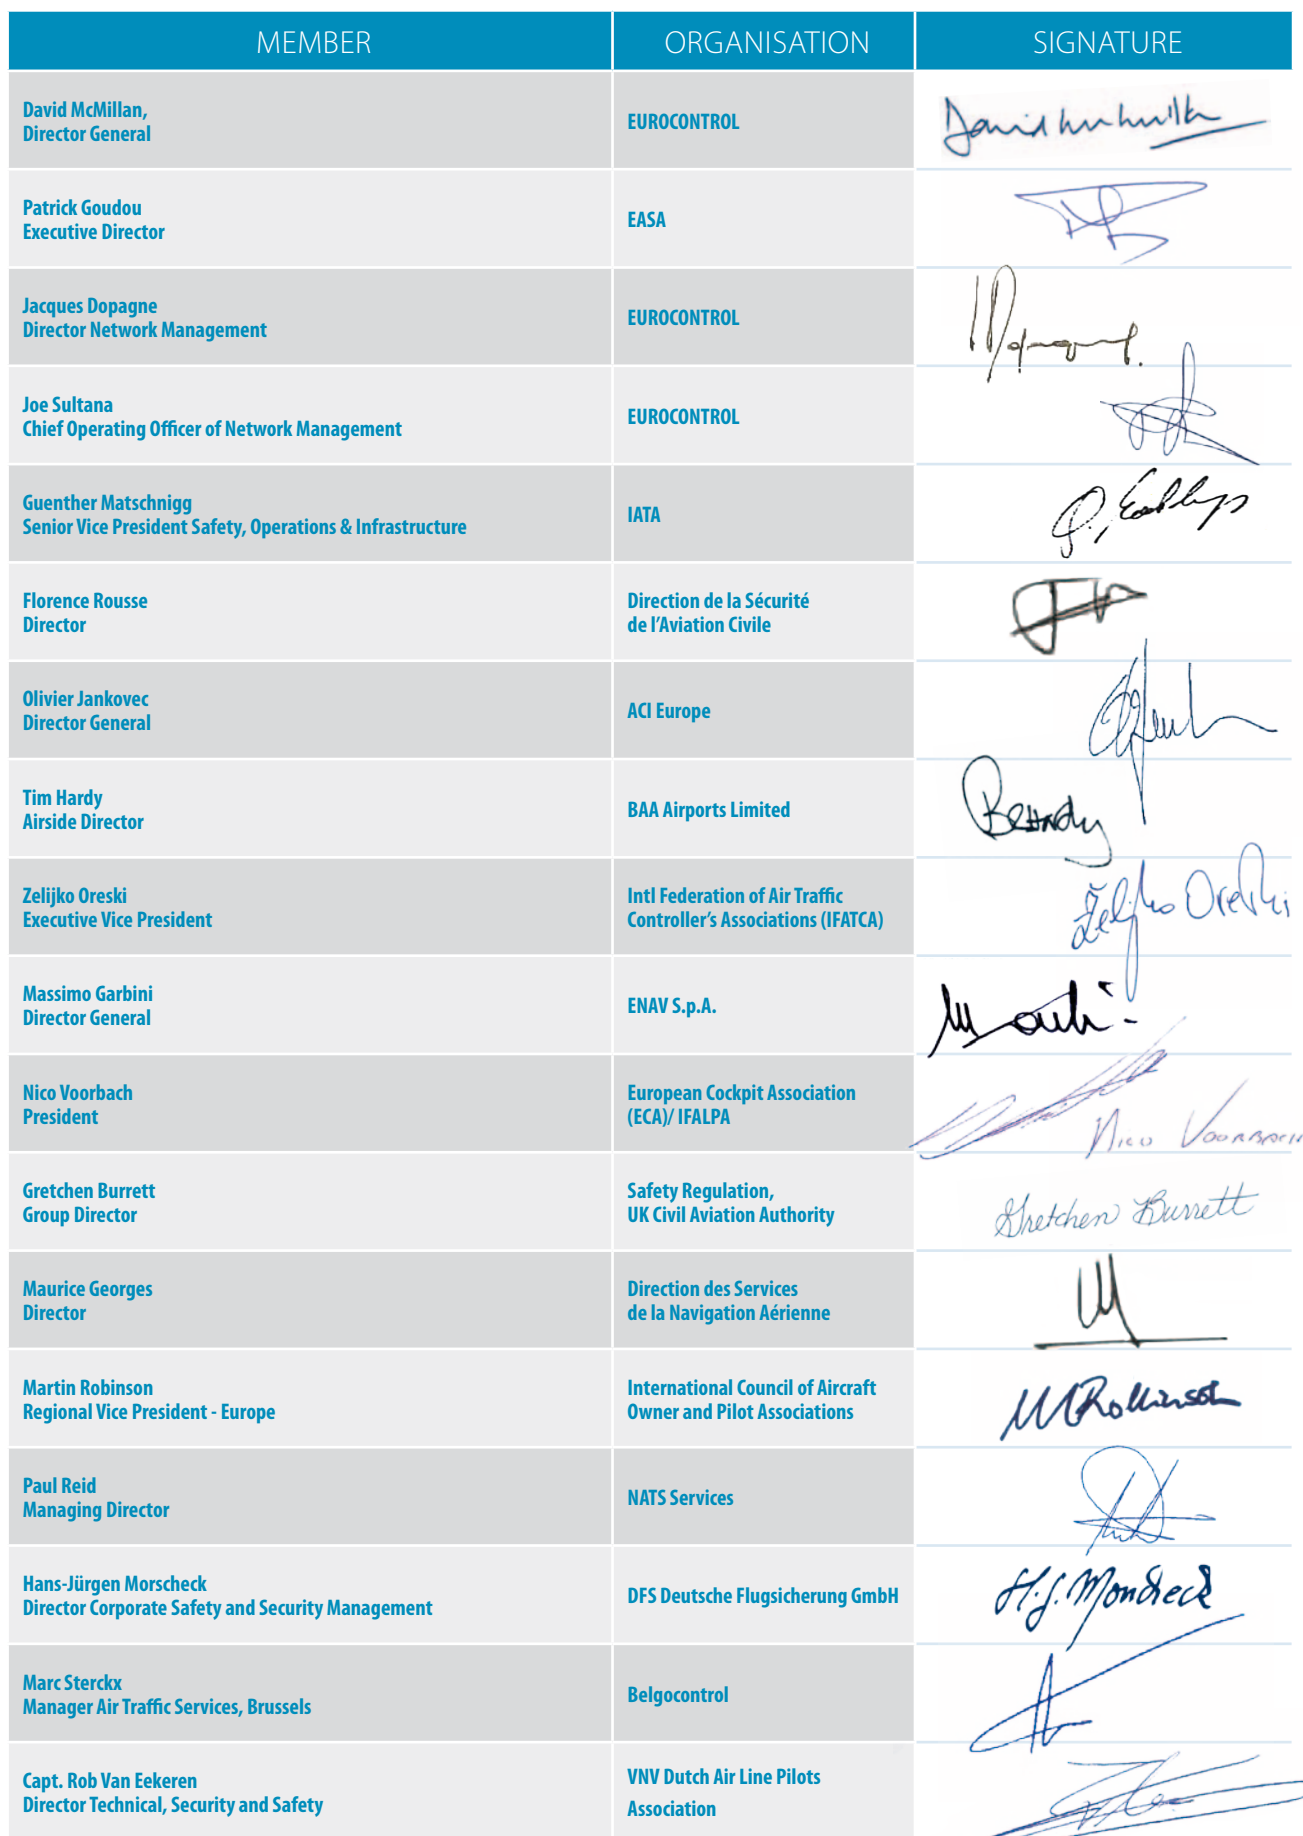 MEMBER ORGANISATION SIGNATURE
David McMillan,
Director General
EUROCONTROL
Patrick Goudou
Executive Director
EASA
Jacques Dopagne
Director Network Management
EUROCONTROL
Joe Sultana
Chief Operating Officer of Network Management
EUROCONTROL
Guenther Matschnigg
Senior Vice President Safety, Operations & Infrastructure
IATA
Florence Rousse
Director
Direction de la Sécurité
de l'Aviation Civile
Olivier Jankovec
Director General
ACI Europe
Tim Hardy
Airside Director
BAA Airports Limited
Zelijko Oreski
Executive Vice President
Intl Federation of Air Traffic
Controller's Associations (IFATCA)
Željko Oreski
Massimo Garbini
Director General
ENAV S.p.A.
Nico Voorbach
President
European Cockpit Association
(ECA)/ IFALPA
Nico Voorbach
Gretchen Burrett
Group Director
Safety Regulation,
UK Civil Aviation Authority
Gretchen Burrett
Maurice Georges
Director
Direction des Services
de la Navigation Aérienne
Martin Robinson
Regional Vice President - Europe
International Council of Aircraft
Owner and Pilot Associations
Paul Reid
Managing Director
NATS Services
Hans-Jürgen Morscheck
Director Corporate Safety and Security Management
DFS Deutsche Flugsicherung GmbH
Marc Sterckx
Manager Air Traffic Services, Brussels
Belgocontrol
Capt. Rob Van Eekeren
Director Technical, Security and Safety
VNV Dutch Air Line Pilots
Association